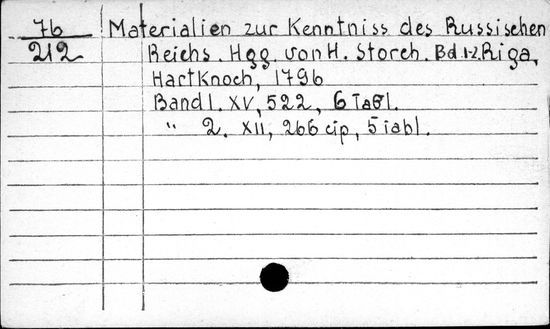 76 Materialien zur Kenntniss des Russischen
212 Reichs. Hgg. von H. Storch. Bd.1-2. Riga,
Hartknoch, 1796
Band 1. XV, 522, 6 Tabl.
" 2. XII, 266 cip, 5 tabl.